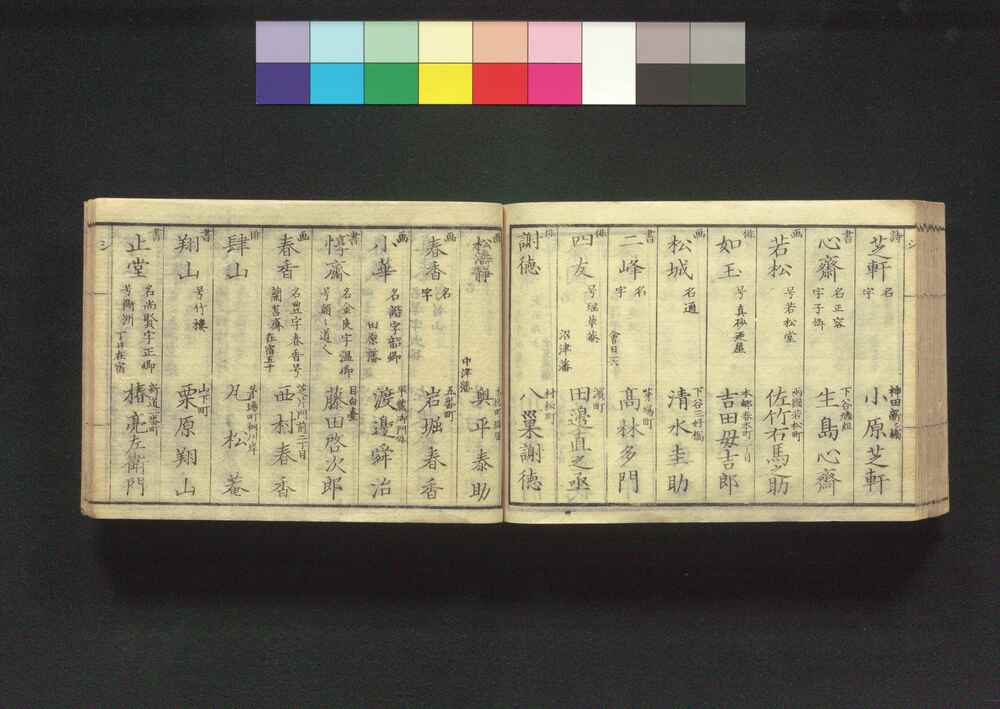 シ
詩 芝軒 名 字 神田 小原芝軒
書 心齋 名正容 字子 下谷 生島心齋
画 若松 号若松堂 両国若松町 佐竹右馬之助
俳 如玉 号真砂 本郷春木町 吉田毋吉郎
画 松城 名通 下谷三好橋 清水圭助
書 二峰 名 字 會日 茅場町 髙林多門
俳 四友 号 沼津藩 濱町 田邊直之丞
俳 謝徳 村松町 八巢謝徳
松 静 中津藩 奥平泰助
画 春香 名 字 五番町 岩堀春香
画 小華 名諧字韶卿 田原藩 渡邊舜治
書 惇齋 名 字温卿 号 道人 目白臺 藤田啓次郎
画 春香 名豊字春香号 蘭 齋 在宿五十 芝 門前二丁目 西村春香
俳 肆山 茅場町 凡松菴
書 翔山 号竹樓 山下町 栗原翔山
書 止堂 名尚賢字正卿 在宿 新道一番町 椿亮左衛門
シ